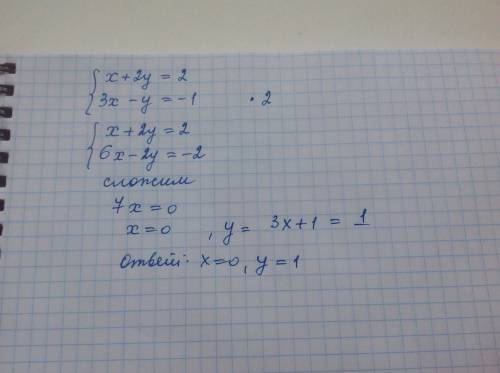 { x + 2y = 2
3x - y = -1 · 2
{ x + 2y = 2
6x - 2y = -2
сложим
7x = 0
x = 0 , y = 3x + 1 = 1
ответ: x = 0, y = 1